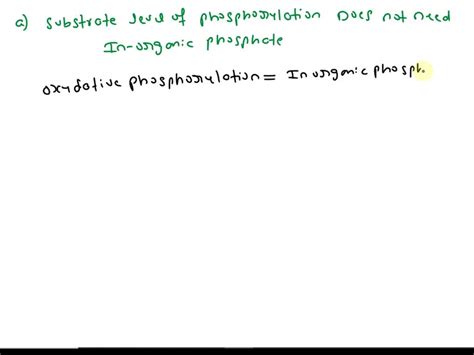 a) Substrate level of phosphorylation Does not need
In-organic phosphate
oxydative phosphorylation = Inorganic phosph